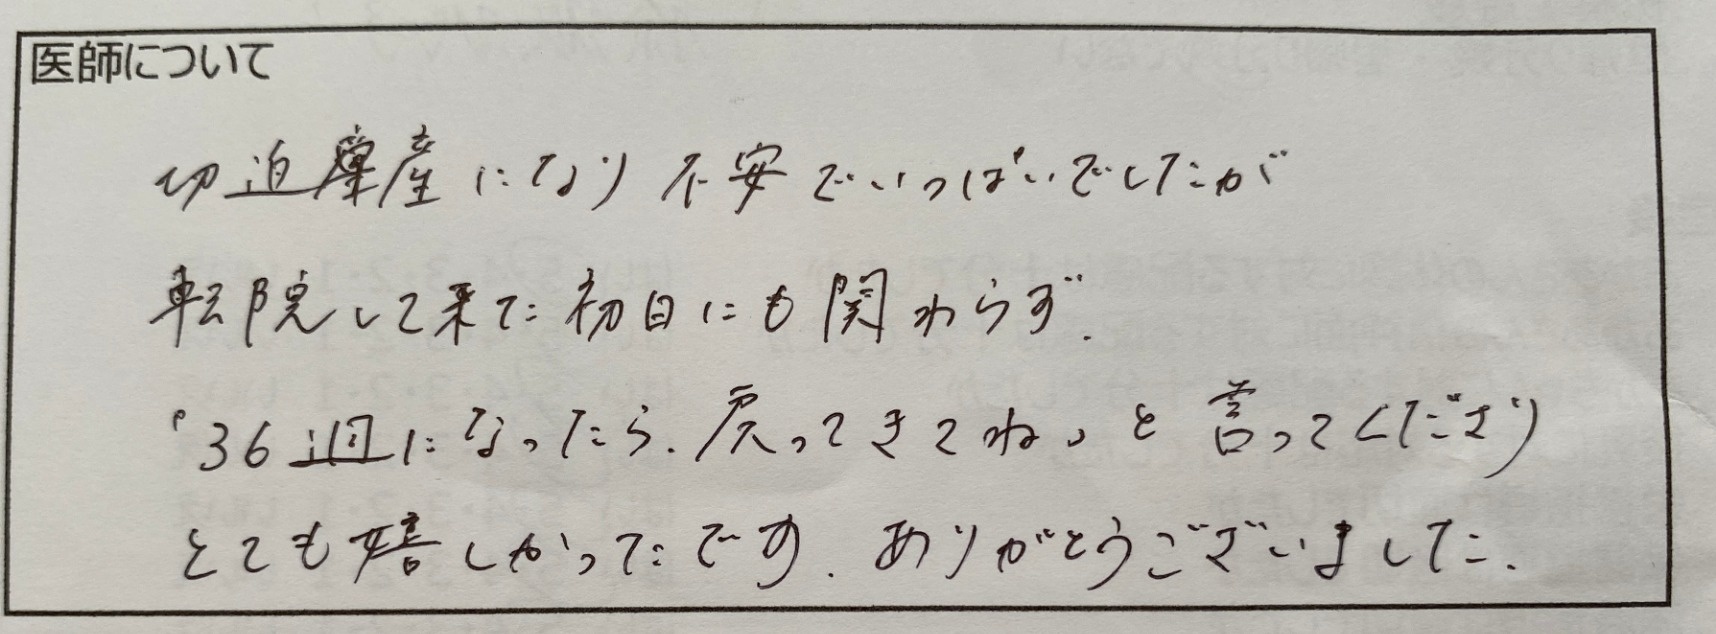 医師について
切迫早産になり不安でいっぱいでしたが
転院して来た初日にも関わらず.
「36週になったら.戻ってきてね」と言ってくださり
とても嬉しかったです.ありがとうございました.